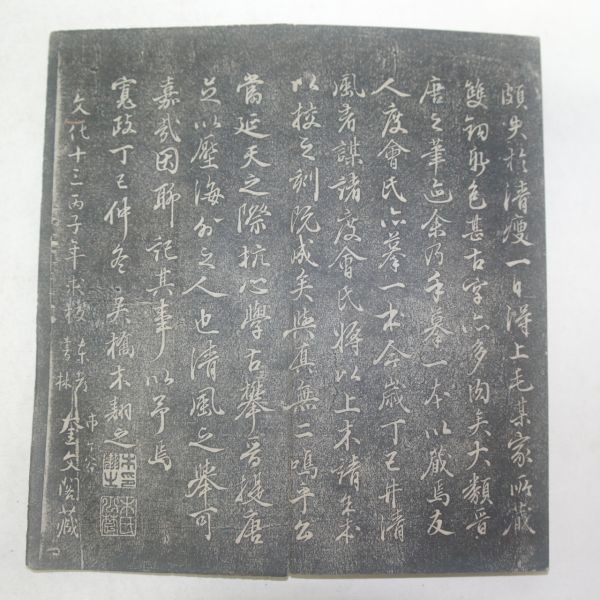 頗失於清瘦一日得上毛某家所蔵
雙鉤形色甚古字亦多肉矣大類晋
唐之筆迹余乃手摹一本以蔵焉友
人度會氏亦摹一本今歳丁巳井清
風者謀諸度會氏将以上木請余
以校之刻既成矣與真無二嗚乎公
當延天之際抗心學古攀晋提唐
足以壓海外之人也清風之舉可
嘉哉因聊記其事以予焉
寛政丁巳仲冬 呉橋木翺之
文化十三丙子年求板 東都 市ヶ谷
書林 奎文閣蔵